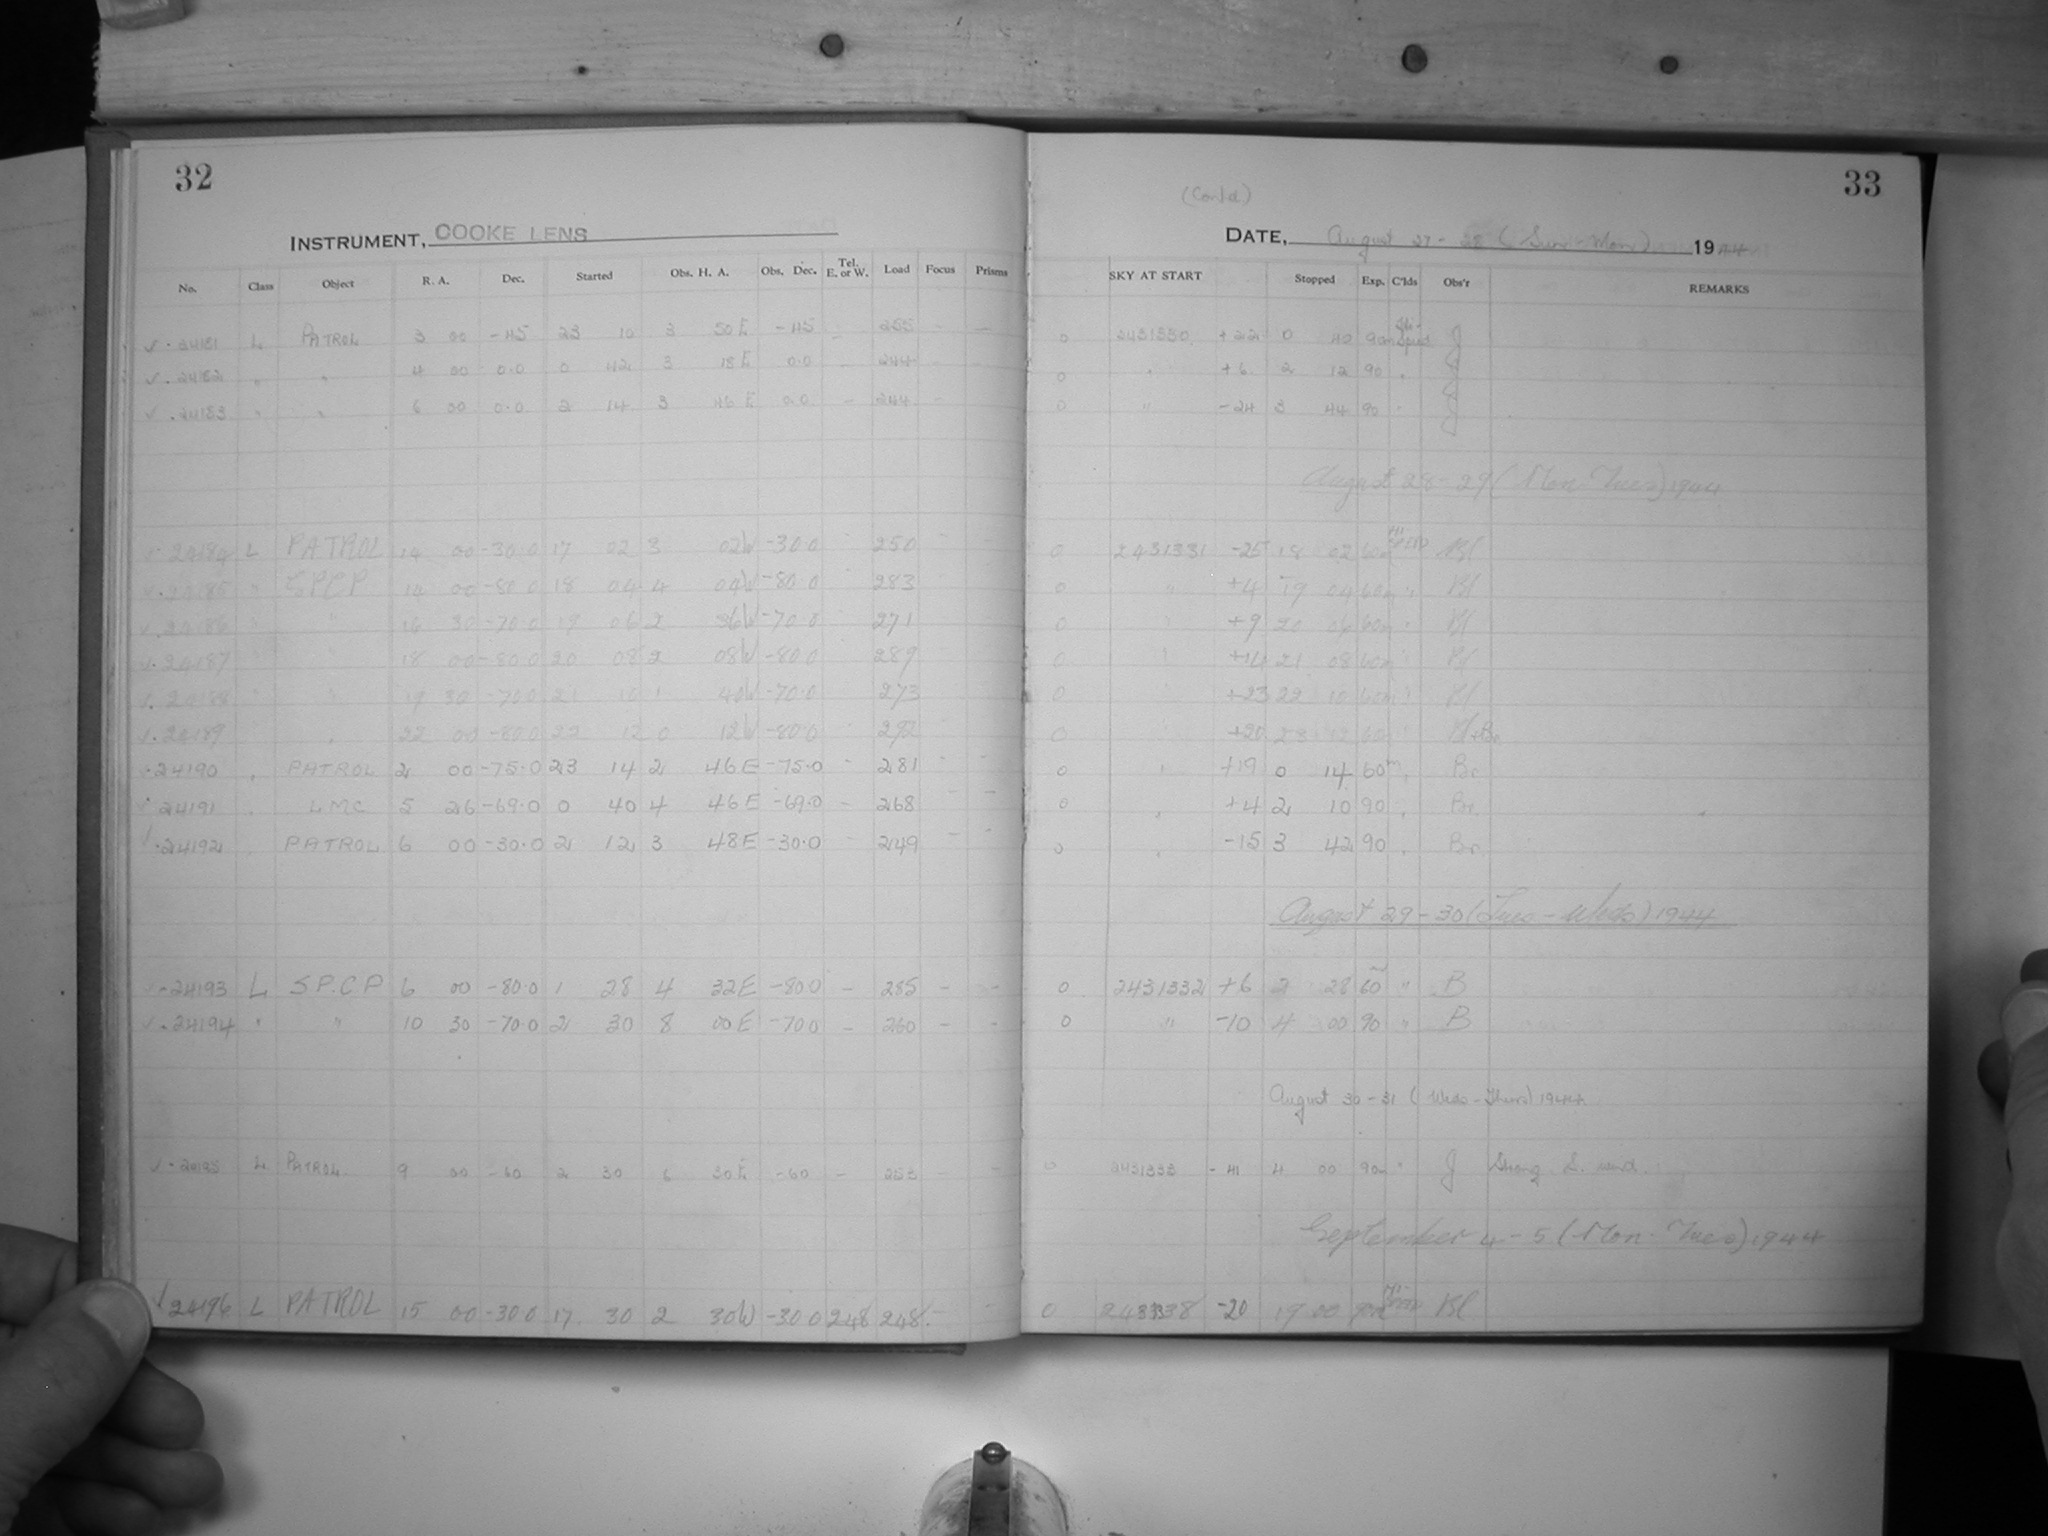 32
INSTRUMENT, COOKE LENS
No. Class Object R. A. Dec. Started Obs. H. A. Obs. Dec. Tel. E. or W. Load Focus Prisms
✓ · 24181 L PATROL 3 00 -45 23 10 3 50 E -45 – 255 – –
✓ · 24182 " " 4 00 0.0 0 42 3 18 E 0.0 – 244 –
✓ · 24183 " " 6 00 0.0 2 14 3 46 E 0.0 – 244 –
✓ · 24184 L PATROL 14 00 -30.0 17 02 3 02W -30.0 – 250 – –
✓ · 24185 " S.P.C.P. 14 00 -80.0 18 04 4 04W -80.0 – 283
✓ · 24186 " " 16 30 -70.0 19 06 2 36W -70.0 271
✓ · 24187 " " 18 00 -80.0 20 08 2 08W -80.0 289
✓ · 24188 " " 19 30 -70.0 21 10 1 40W -70.0 273
✓ · 24189 " 22 00 -80.0 22 12 0 12W -80.0 292
✓ · 24190 " PATROL 2 00 -75.0 23 14 2 46 E -75.0 – 281 – –
✓ · 24191 " LMC 5 26 -69.0 0 40 4 46 E -69.0 – 268 – –
✓ · 24192 " PATROL 6 00 -30.0 2 12 3 48 E -30.0 – 249 – –
✓ · 24193 L S.P.C.P 6 00 -80.0 1 28 4 32 E -80.0 – 285 – –
✓ · 24194 " " 10 30 -70.0 2 30 8 00 E -70.0 – 260 – –
✓ · 24195 L PATROL 9 00 -60 2 30 6 30 E -60 – 253 – –
✓ 24196 L PATROL 15 00 -30.0 17 30 2 30W -30.0 248 248 – –
33
(Contd)
DATE, August 27 - 28 (Sun - Mon) 1944
SKY AT START Stopped Exp. C'lds Obs'r REMARKS
0 2431330 +22 0 40 90m Hi-Speed J
0 " +6 2 12 90 " J
0 " -24 3 44 90 " J
August 28 - 29 (Mon. Tues) 1944
0 2431331 -25 18 02 60m HI SPEED Bl
0 " +4 19 04 60m " Bl
0 " +9 20 06 60m " Bl
0 " +14 21 08 60m " Bl
0 +23 22 10 60m " Bl
0 +20 23 12 60m " Bl+Br
0 " +19 0 14 60m " Br.
0 " +4 2 10 90 " Br.
0 " -15 3 42 90 " Br.
August 29 - 30 (Tues - Weds) 1944
0 2431332 +6 2 28 60m " B
0 " -10 4 00 90 " B
August 30 - 31 (Weds - Thurs) 1944
0 2431333 -41 4 00 90m " J Strong S. wind.
September 4 - 5 (Mon. Tues) 1944
0 2431338 -20 19 00 90m HI-SPEED Bl